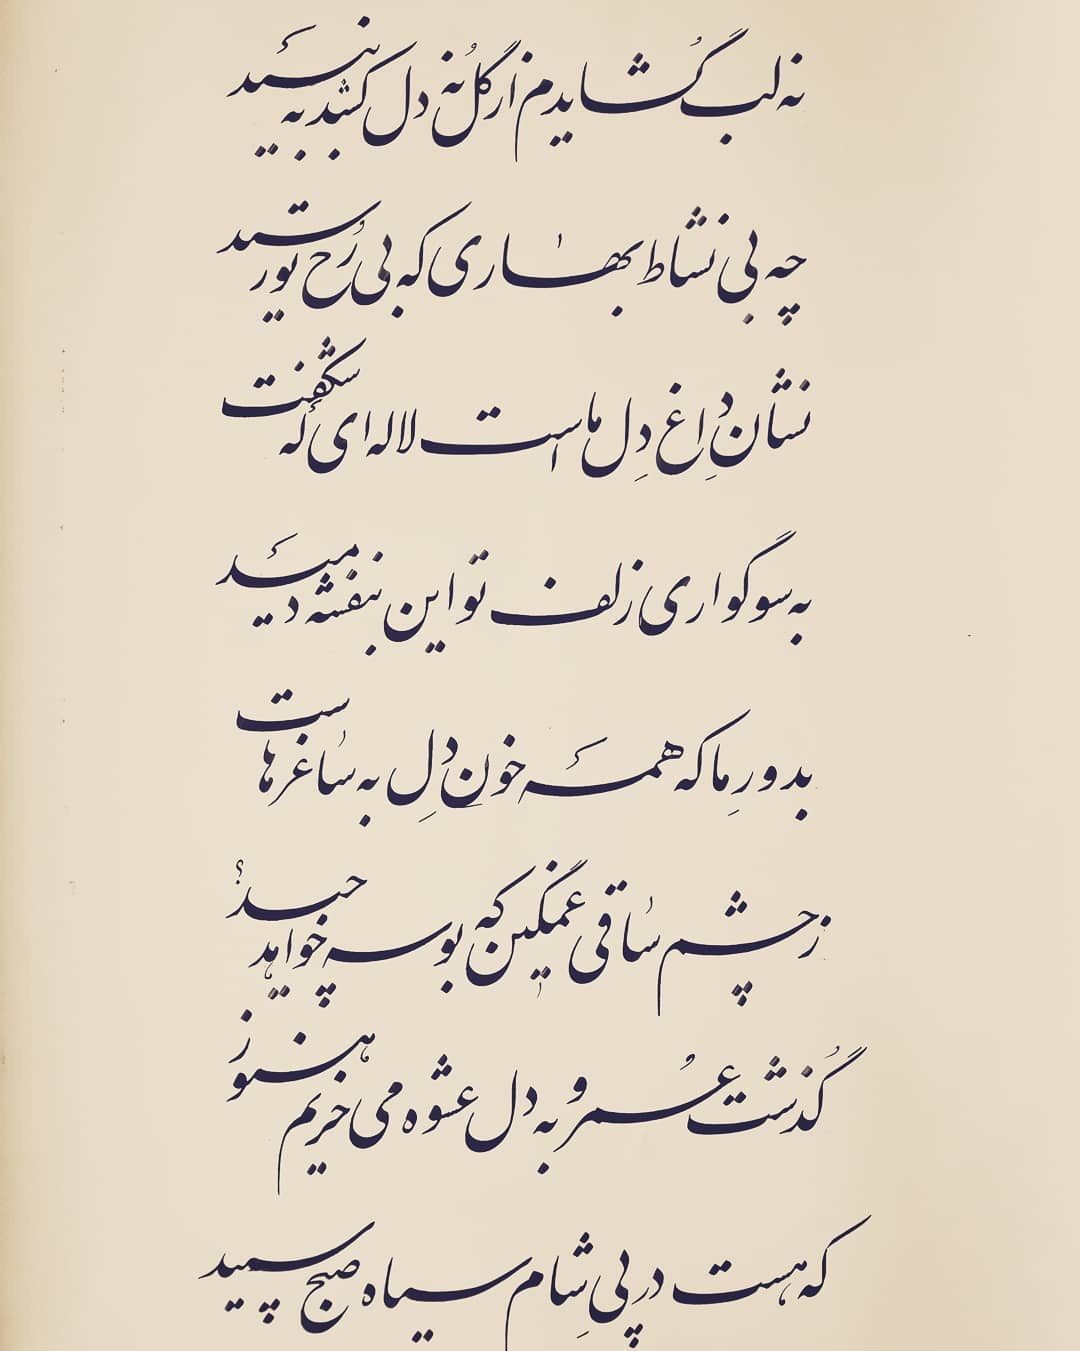 نه لب گشایدم از گل نه دل کشد به نبید
چه بی نشاط بهاری که بی رُخ تو رسید
نشانِ داغِ دِلِ ماست لاله ای که شکفت
به سوگواری زلف تو این بنفشه دمید
بدورِ ما که همه خونِ دِل به ساغرهاست
ز چشم ساقی غمگین که بوسه خواهد چید؟
گذشت عُمر و به دل عشوه می خریم هنوز
که هست در پیِ شام سیاه صبح سپید